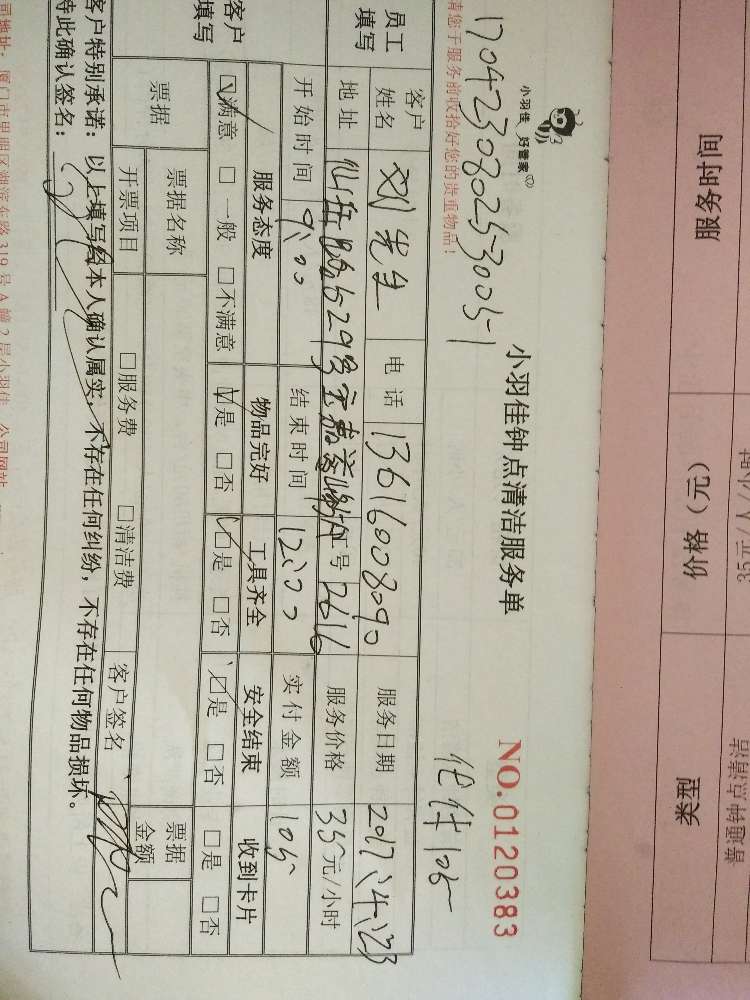 小羽佳 好管家
小羽佳钟点清洁服务单
NO.0120383
1704230802530051
请您于服务前收拾好您的贵重物品！
代付105
员工填写
客户姓名 刘先生 电话 13616008090 服务日期 2017.4.23
地址 工号 2616 服务价格 35元/小时
开始时间 9:00 结束时间 12:00 实付金额 105
客户填写
服务态度 物品完好 工具齐全 安全结束 收到卡片
☑满意 □一般 □不满意 ☑是 □否 ☑是 □否 ☑是 □否 □是 □否
票据 票据名称 票据金额
开票项目 □服务费 □清洁费 客户签名
客户特别承诺：以上填写经本人确认属实，不存在任何纠纷，不存在任何物品损坏。
特此确认签名：
司地址：厦门市思明区湖滨东路319号A幢2层小羽佳 公司网站
服务时间 价格（元） 类型
35元/人/小时 普通钟点清洁